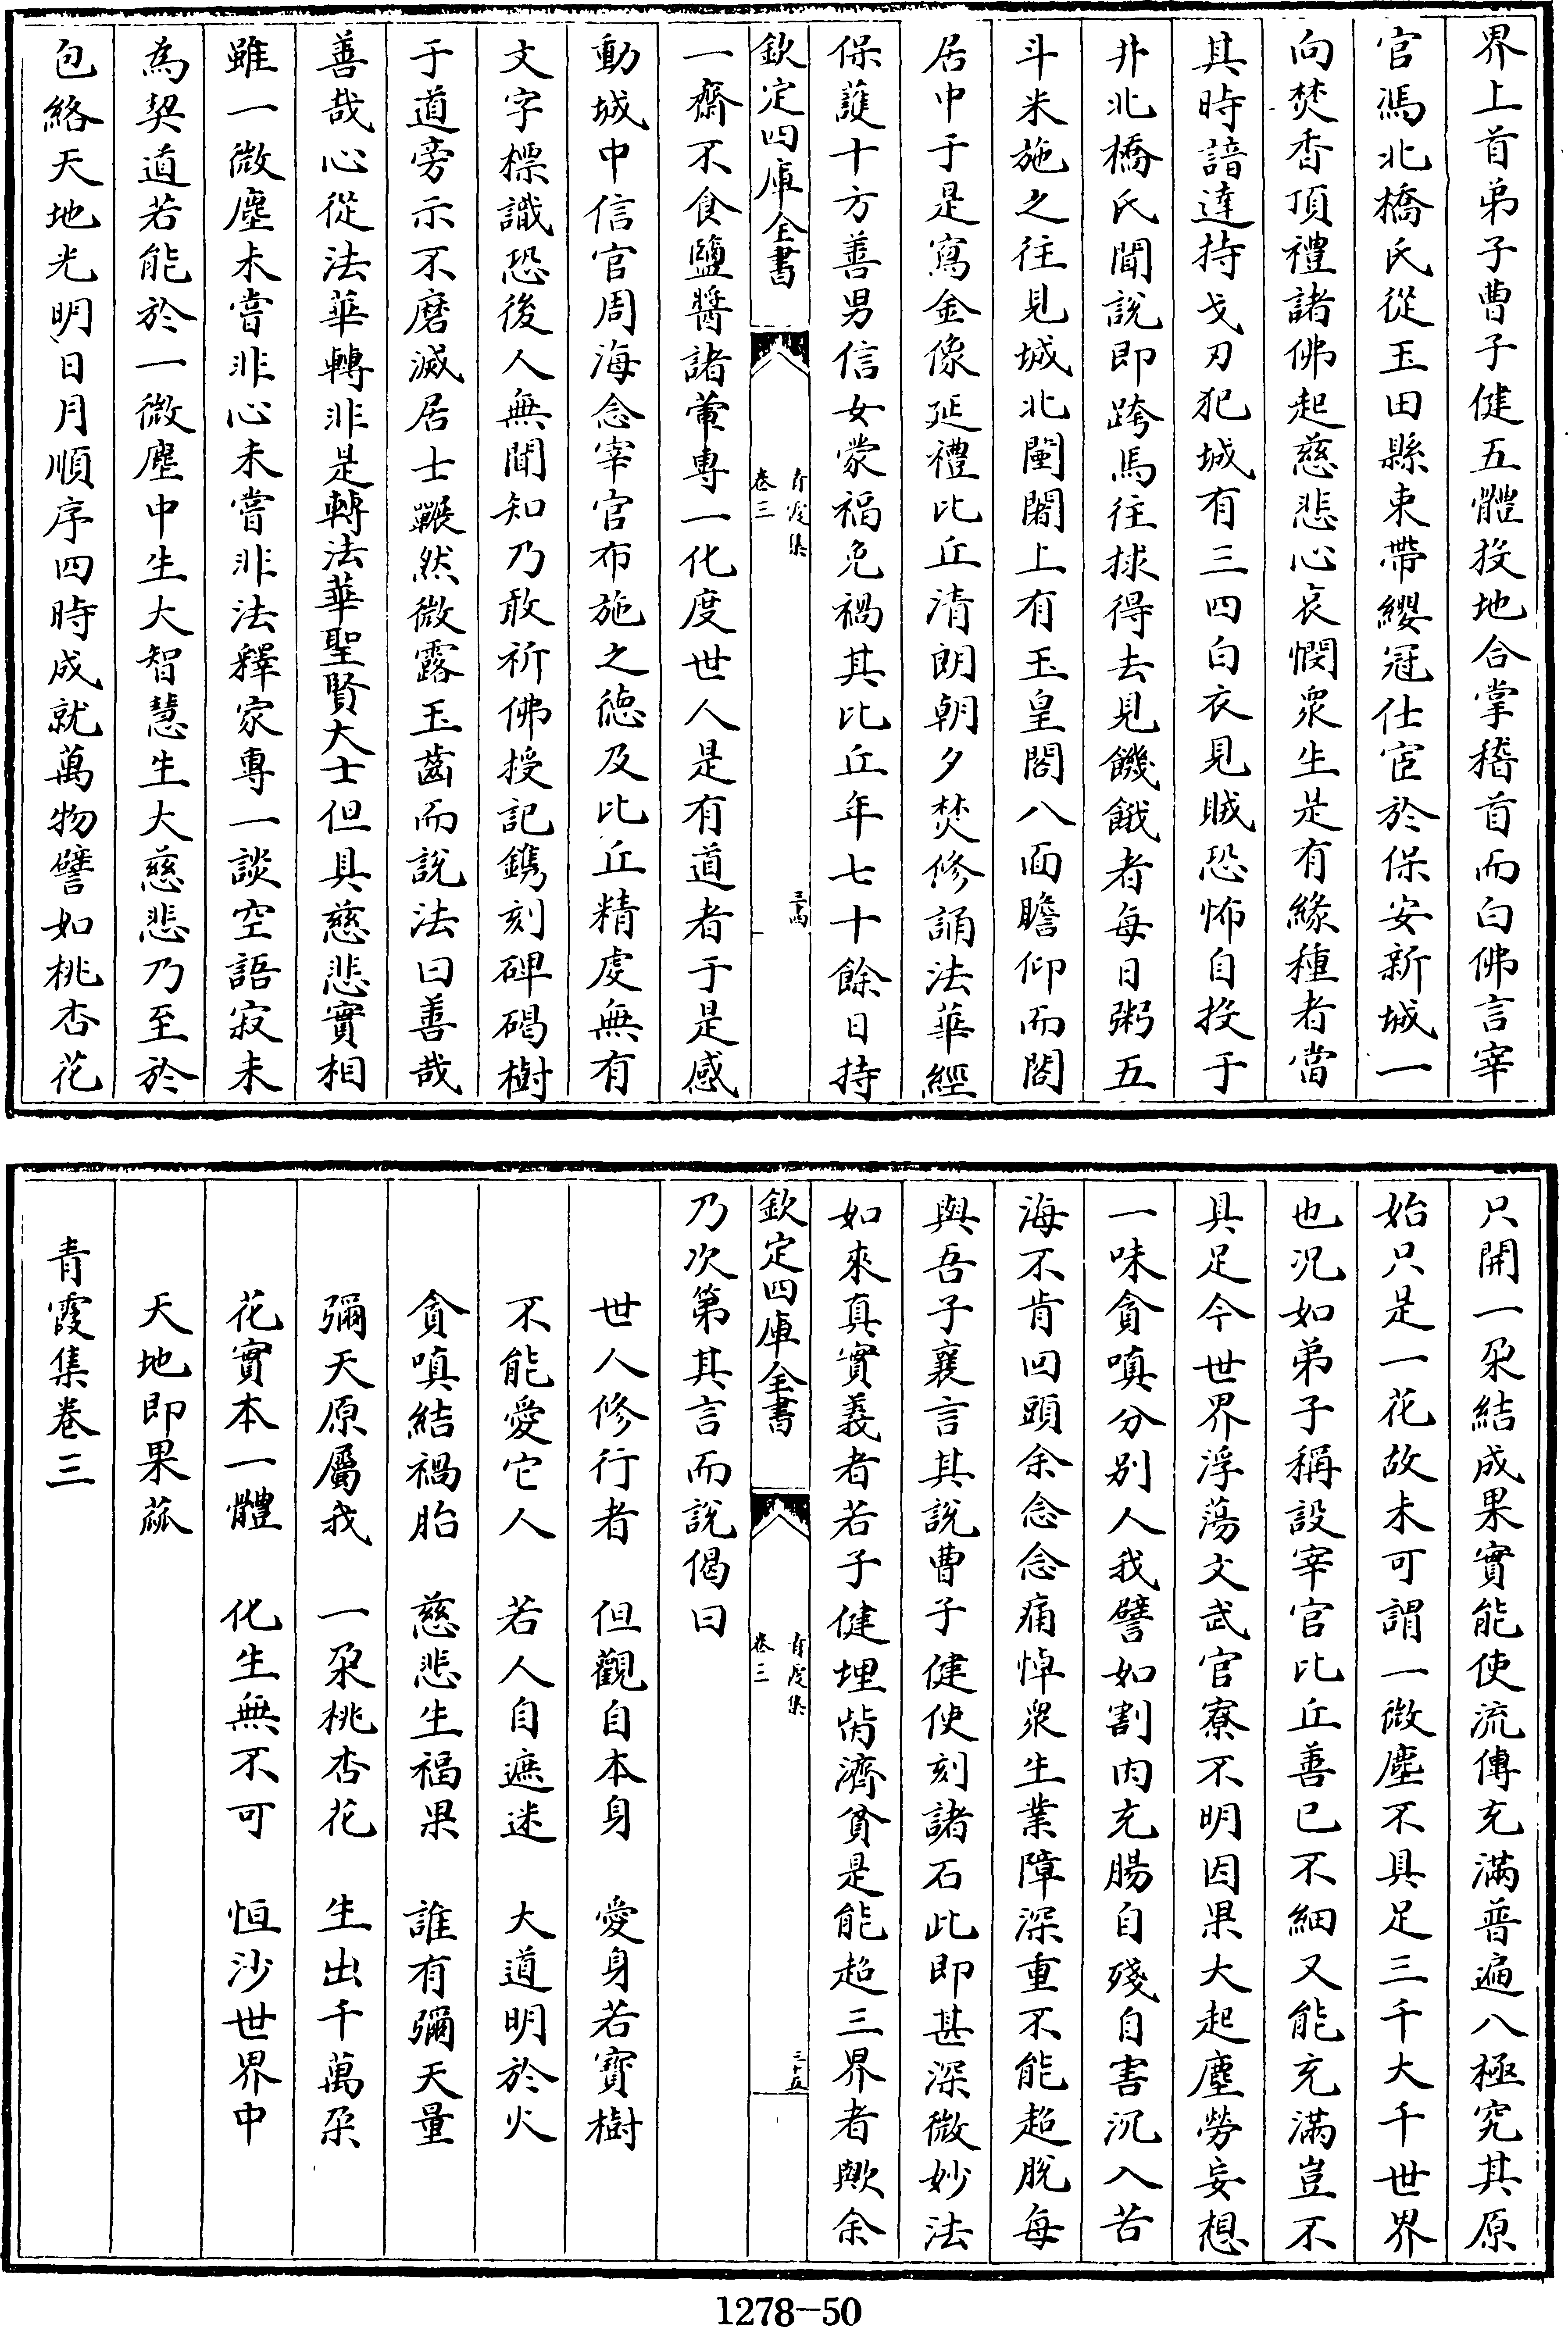 界上首弟子曹子健五體投地合掌稽首而白佛言宰
官馮北橋氏從玉田縣束帶纓冠仕宦於保安新城一
向焚香頂禮諸佛起慈悲心哀憫衆生是有緣種者當
其時諳達持戈刃犯城有三四白衣見賊恐怖自投于
井北橋氏聞說即跨馬往捄得去見饑餓者每日粥五
斗米施之往見城北闉闍上有玉皇閣八面瞻仰而閣
居中于是寫金像延禮比丘清朗朝夕焚修誦法華經
保護十方善男信女蒙福免禍其比丘年七十餘日持
欽定四庫全書
青霞集
卷三
三十四
一齋不食鹽醬諸葷專一化度世人是有道者于是感
動城中信官周海念宰官布施之德及比丘精虔無有
文字標識恐後人無聞知乃敢祈佛授記鐫刻碑碣樹
于道旁示不磨滅居士囅然微露玉齒而說法曰善哉
善哉心從法華轉非是轉法華聖賢大士但具慈悲實相
雖一微塵未嘗非心未嘗非法釋家專一談空語寂未
為契道若能於一微塵中生大智慧生大慈悲乃至於
包絡天地光明日月順序四時成就萬物譬如桃杏花
只開一朶結成果實能使流傳充滿普遍八極究其原
始只是一花故未可謂一微塵不具足三千大千世界
也况如弟子稱設宰官比丘善已不細又能充滿豈不
具足今世界浮蕩文武官寮不明因果大起塵勞妄想
一味貪嗔分別人我譬如割肉充腸自殘自害沉入苦
海不肯回頭余念念痛悼衆生業障深重不能超脫每
與吾子襄言其說曹子健使刻諸石此即甚深微妙法
如來真實義者若子健埋胔濟貧是能超三界者歟余
欽定四庫全書
青霞集
卷三
三十五
乃次第其言而說偈曰
世人修行者　但觀自本身　愛身若寶樹
不能愛它人　若人自遮迷　大道明於火
貪嗔結禍胎　慈悲生福果　誰有彌天量
彌天原屬我　一朶桃杏花　生出千萬朶
花實本一體　化生無不可　恒沙世界中
天地即果蓏
青霞集卷三
1278－50